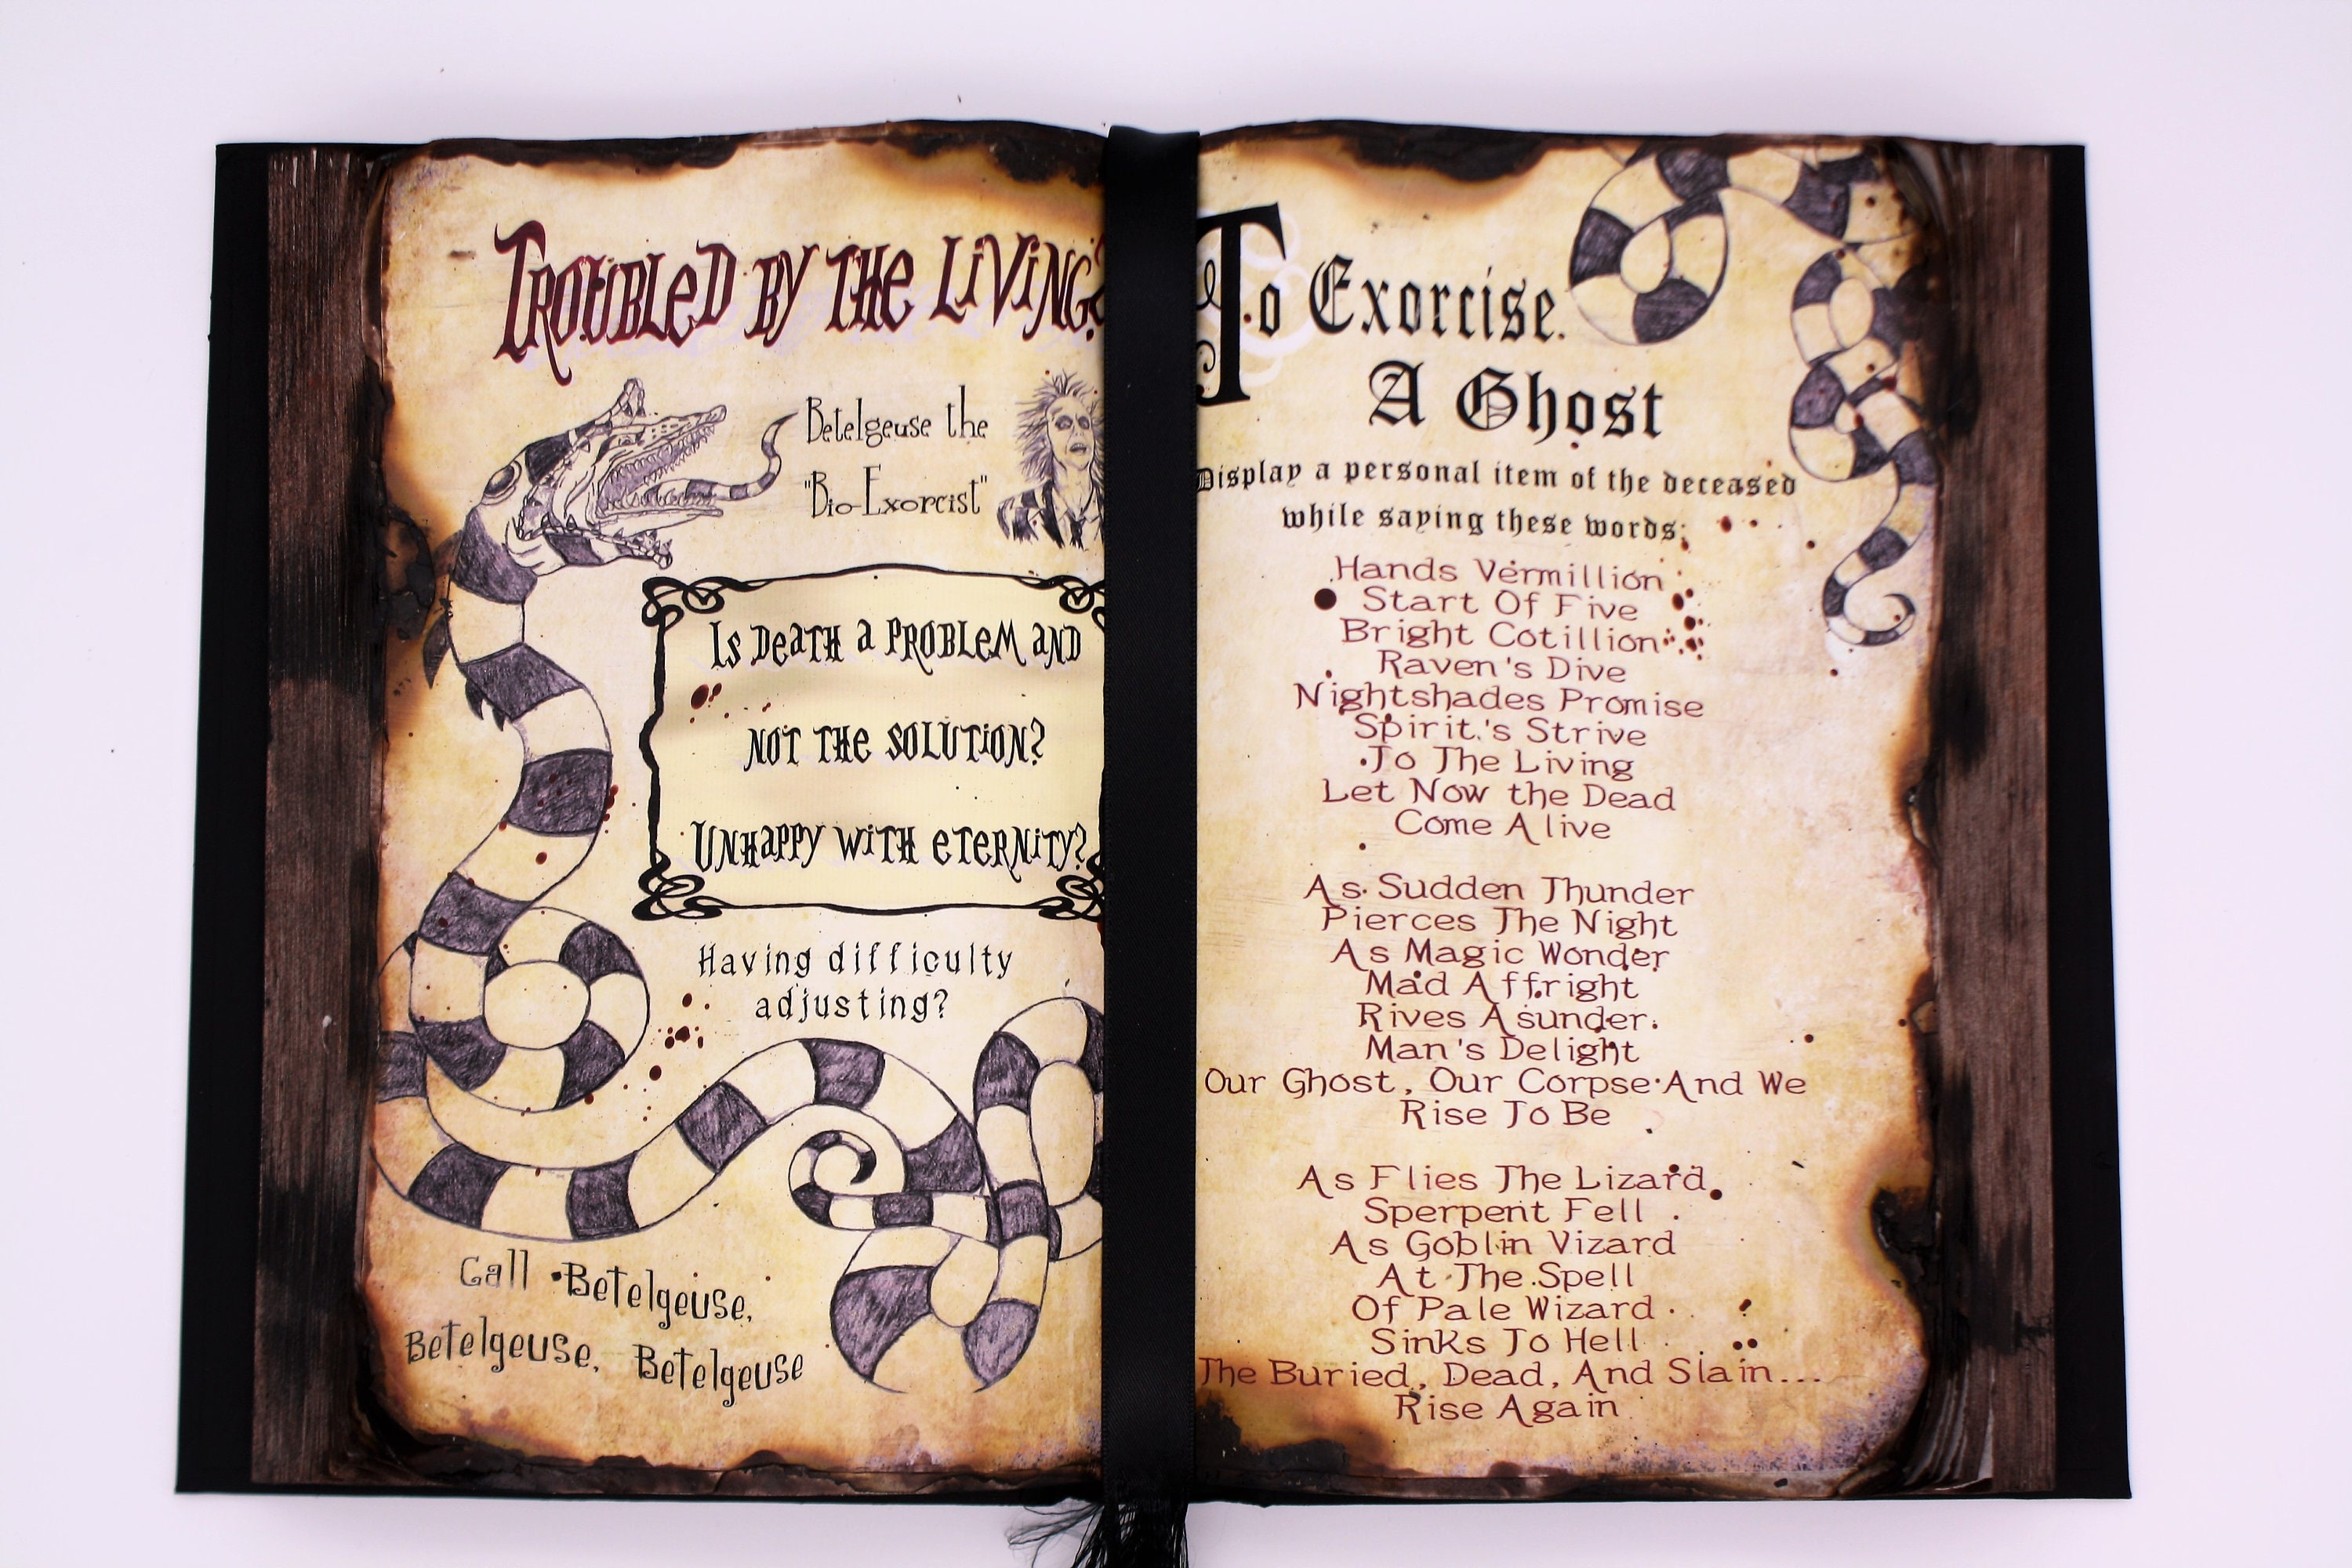 Troubled by the Living?
Betelgeuse the
"Bio-Exorcist"
Is Death a problem and
not the solution?
Unhappy with eternity?
Having difficulty
adjusting?
Call Betelgeuse,
Betelgeuse, Betelgeuse
To Exorcise
A Ghost
Display a personal item of the deceased
while saying these words:
Hands Vermillion
Start Of Five
Bright Cotillion
Raven's Dive
Nightshades Promise
Spirit's Strive
To The Living
Let Now the Dead
Come Alive
As Sudden Thunder
Pierces The Night
As Magic Wonder
Mad Affright
Rives Asunder
Man's Delight
Our Ghost, Our Corpse And We
Rise To Be
As Flies The Lizard
Sperpent Fell
As Goblin Vizard
At The Spell
Of Pale Wizard
Sinks To Hell
The Buried, Dead, And Slain...
Rise Again